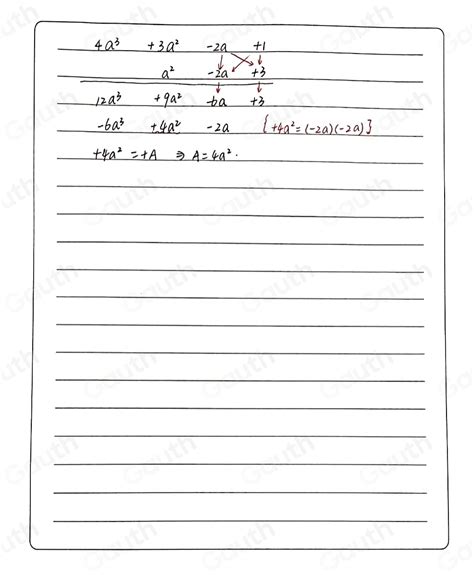 4a³ +3a² -2a +1
a² -2a +3
12a³ +9a² -6a +3
-6a³ +4a² -2a {+4a²=(-2a)(-2a)}
+4a² = +A ⇒ A=4a².